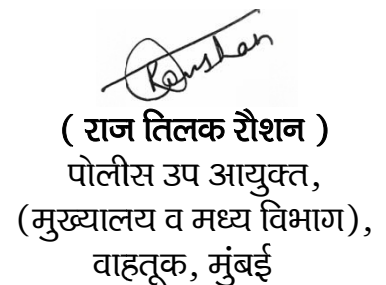 Roushan
( राज तिलक रौशन )
पोलीस उप आयुक्त,
(मुख्यालय व मध्य विभाग),
वाहतूक, मुंबई